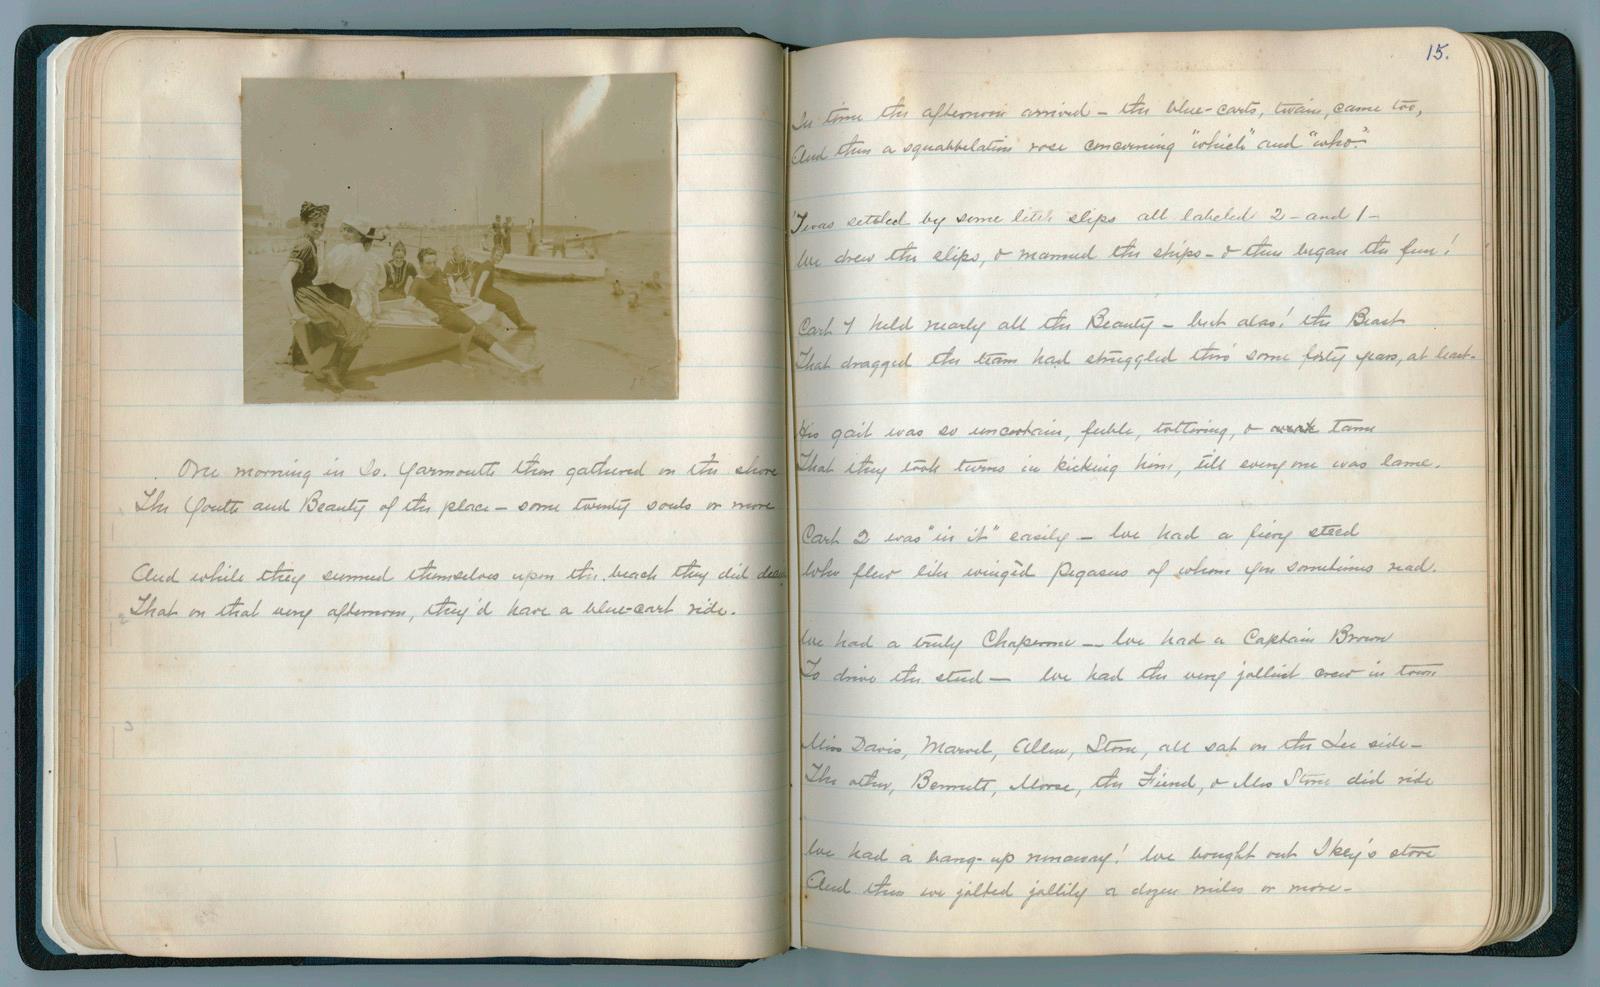 One morning in So. Yarmouth then gathered on the shore
The Youth and Beauty of the place – some twenty souls or more
And while they sunned themselves upon the beach they did
That on that very afternoon, they'd have a blue-cart ride.
15.
In time the afternoon arrived – the blue-carts, twain, came too,
And then a squabbelation rose concerning "which" and "who".
'Twas settled by some little slips all labeled 2 – and 1 –
We drew the slips, & manned the ships – & then began the fun!
Cart 1 held nearly all the Beauty – but alas! the Beast
That dragged the team had struggled thro' some forty years, at least.
His gait was so uncertain, feeble, tottering, & tame
That they took turns in kicking him, till everyone was lame.
Cart 2 was "in it" easily – We had a fiery steed
Who flew like wingèd Pegasus of whom you sometimes read.
We had a truly Chaperone — We had a Captain Brown
To drive the steed — We had the very jolliest crew in town
Miss Davis, Marvel, Allen, Stone, all sat on the Lee side –
The other, Bennett, Morse, the Fiend, & Mrs Stone did ride
We had a bang-up runaway! We bought out Ikey's store
And thus we jolted jollily a dozen miles or more –